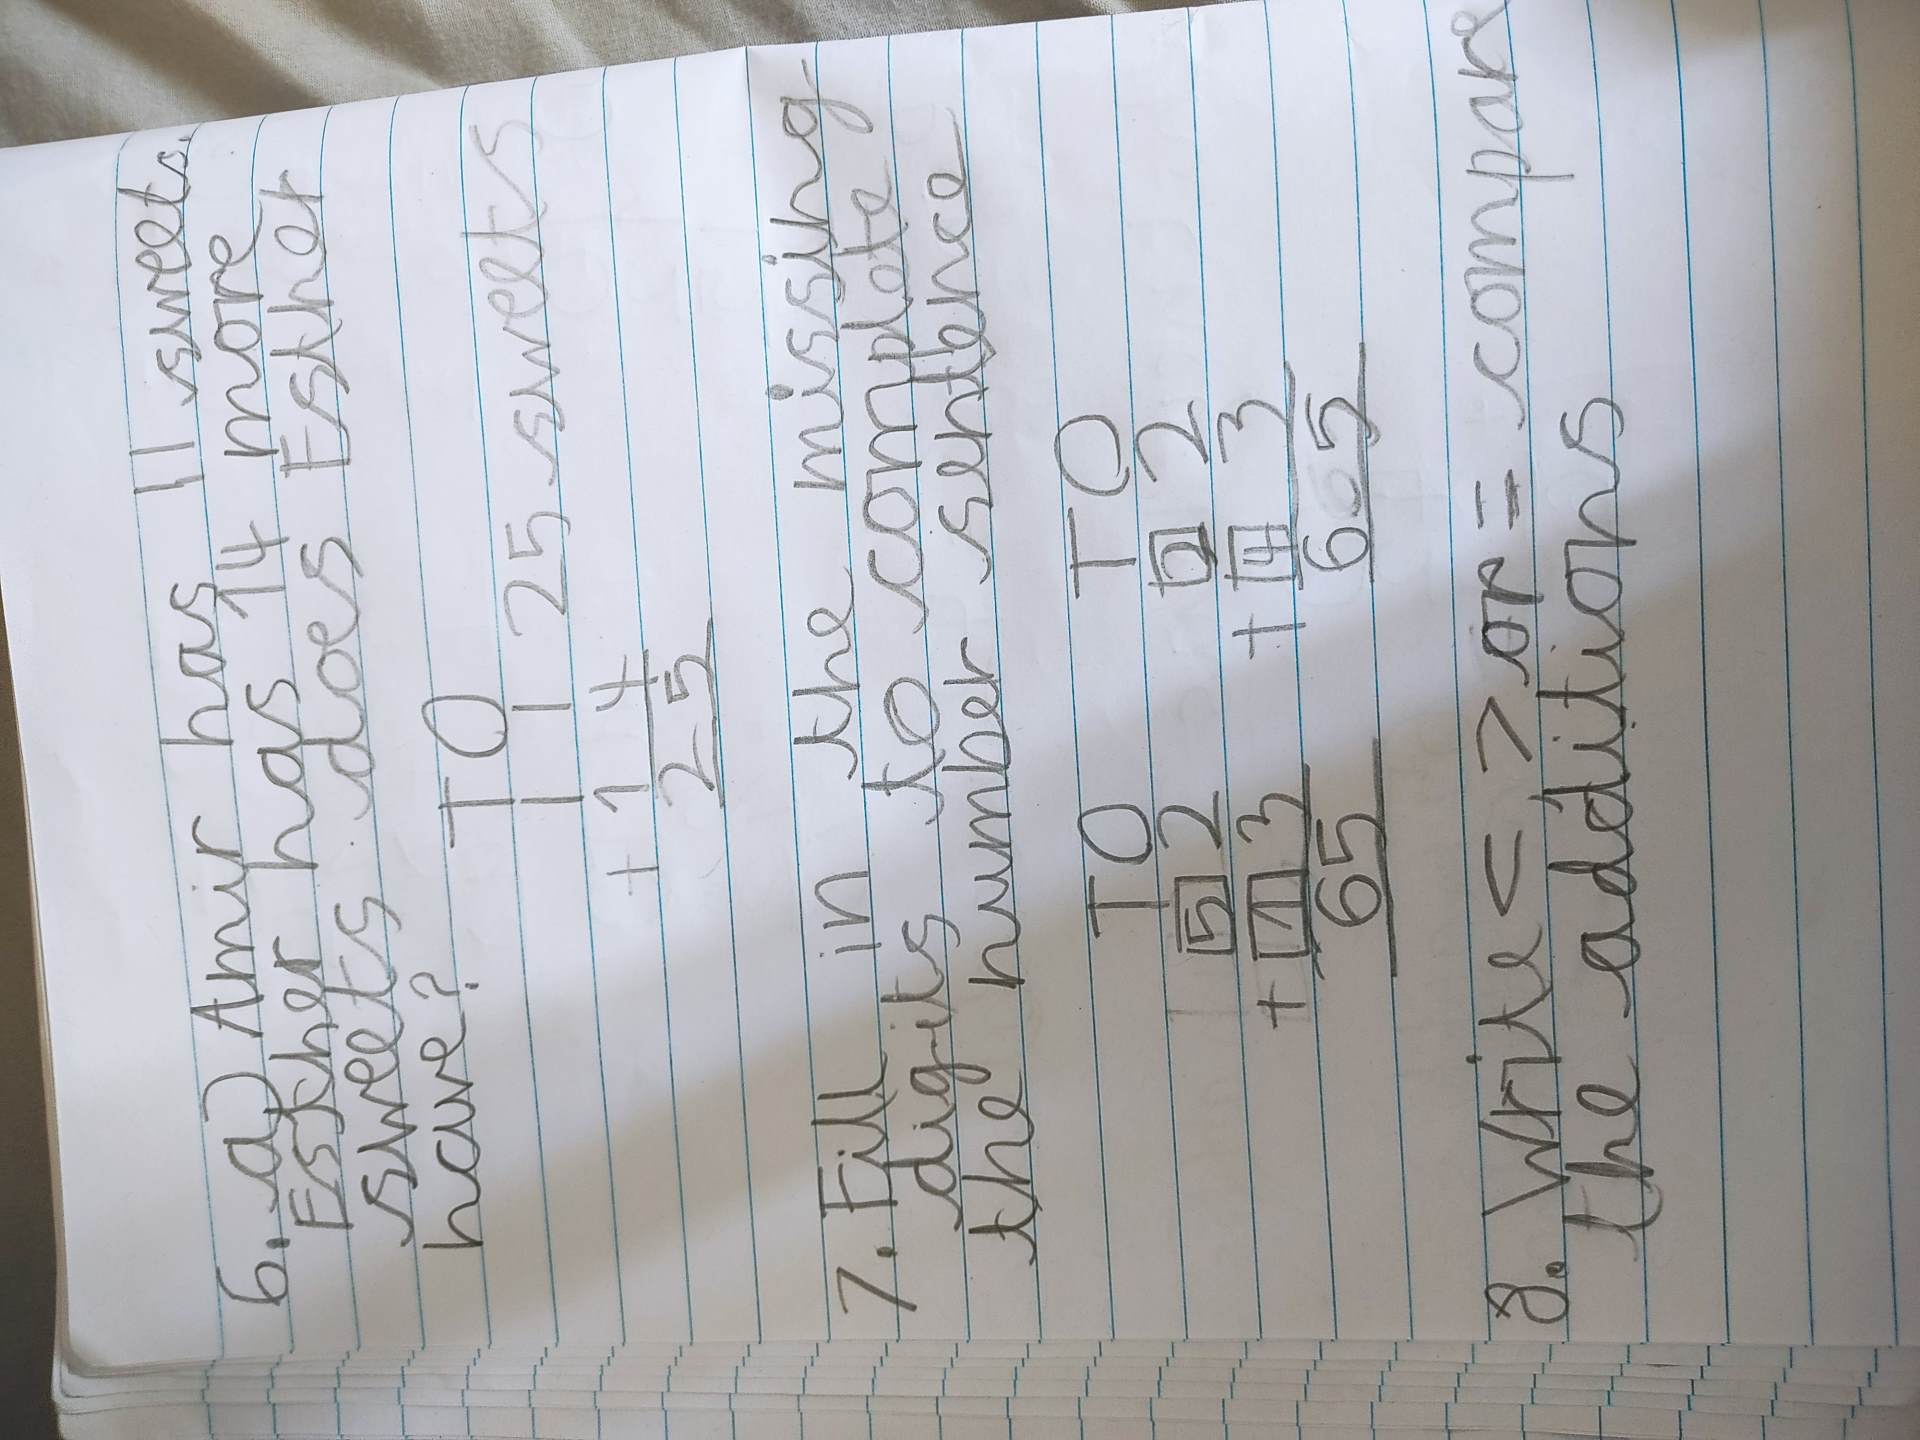 6. a) Amir has 11 sweets.
Esther has 14 more
sweets. does Esther
have?
T O
1 1 25 sweets
+ 1 4
2 5
7. Fill in the missing
digits to complete
the number sentence
T O T O
5 2 2 2
+ 1 3 + 4 3
6 5 6 5
8. Write < > or = compare
the additions